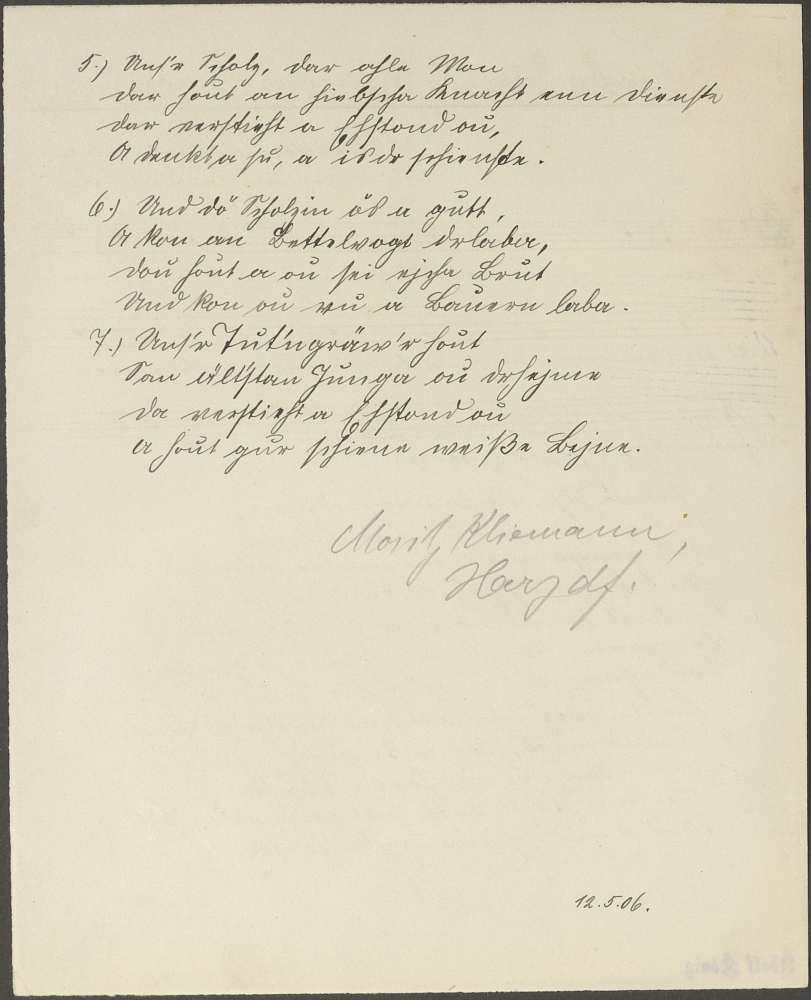 5.) Uns'r Scholz, dar ahle Mon
dar hout an hiebscha Knacht enn Dienste
dar verstieht a Ehstond ou,
A denkt a su, a is dr schienste.
6.) Und dö Scholzin ös a gutt,
A kon an Bettelvogt drlaba,
dou hout a ou sei ejcha Brut
Und kon ou vu a Bauern laba.
7.) Uns'r Tut'ngräw'r hout
San ält'stan Junga ou drhejme
Da verstieht a Ehstond ou
A hout gur schiene weiße Bejne.
Moritz Kliemann,
Harzdf.
12.5.06.